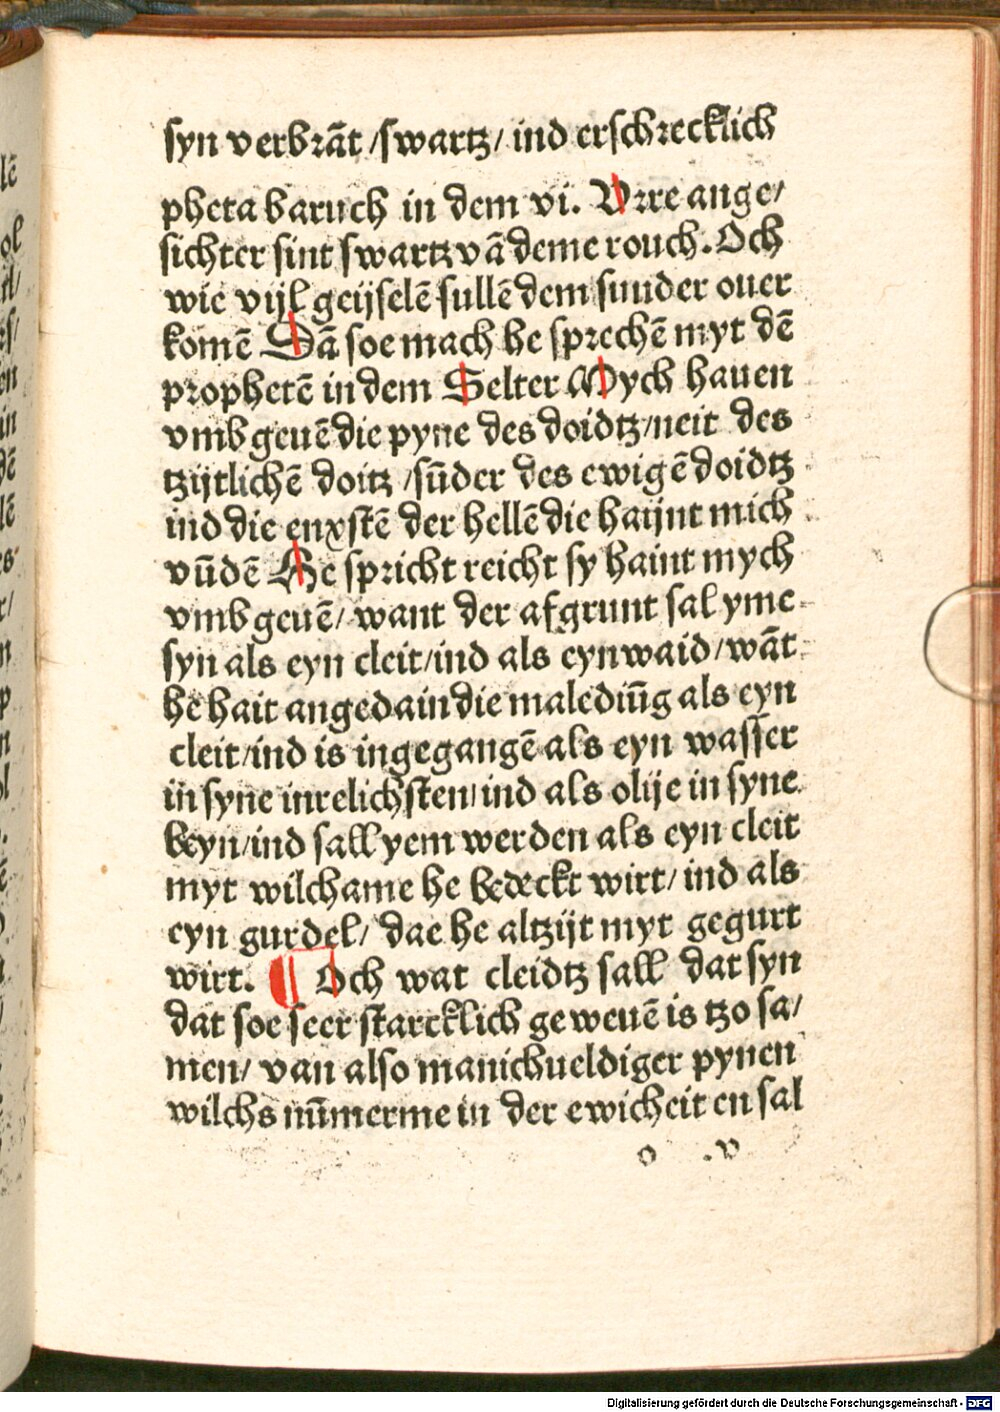 syn verbrāt /swartz/ ind erschrecklich
pheta baruch in dem vi. Vrre ange/
sichter sint swartz vā deme rouch. Och
wie vijl geijselē sullē dem sunder ouer
komē Dā soe mach he sprechē myt dē
prophetē in dem Selter Mych hauen
vmb geuē die pyne des doidtz/neit des
tzijtlichē doitz /sūder des ewigē doidtz
ind die enxstē der hellē die haijnt mich
vūdē He spricht reicht sy haint mych
vmb geuē/ want der afgrunt sal yme
syn als eyn cleit/ind als eyn waid/wāt
he hait angedain die malediūg als eyn
cleit/ind is ingegangē als eyn wasser
in syne inrelichsten/ind als olije in syne
beyn/ind sall yem werden als eyn cleit
myt wilchame he bedeckt wirt/ ind als
eyn gurdel/ dae he altzijt myt gegurt
wirt. ¶ Och wat cleidtz sall dat syn
dat soe seer starcklich geweuē is tzo sa/
men/ van also manichueldiger pynen
wilchs nūmerme in der ewicheit en sal
o .v
Digitalisierung gefördert durch die Deutsche Forschungsgemeinschaft - DFG